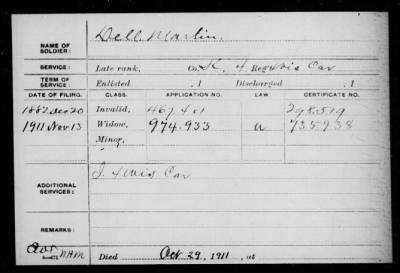 NAME OF SOLDIER: Dell Martin.
SERVICE: Late rank, Co. K. 4 Reg't Wis Cav
TERM OF SERVICE: Enlisted , 1 Discharged , 1
DATE OF FILING. CLASS. APPLICATION NO. LAW CERTIFICATE NO.
1882 Dec 20 Invalid, 467.401 298519
1911 Nov 13 Widow, 974.933 a 735938
Minor,
ADDITIONAL SERVICES: 4 Wis Cav
REMARKS:
Died Oct 29, 1911, at